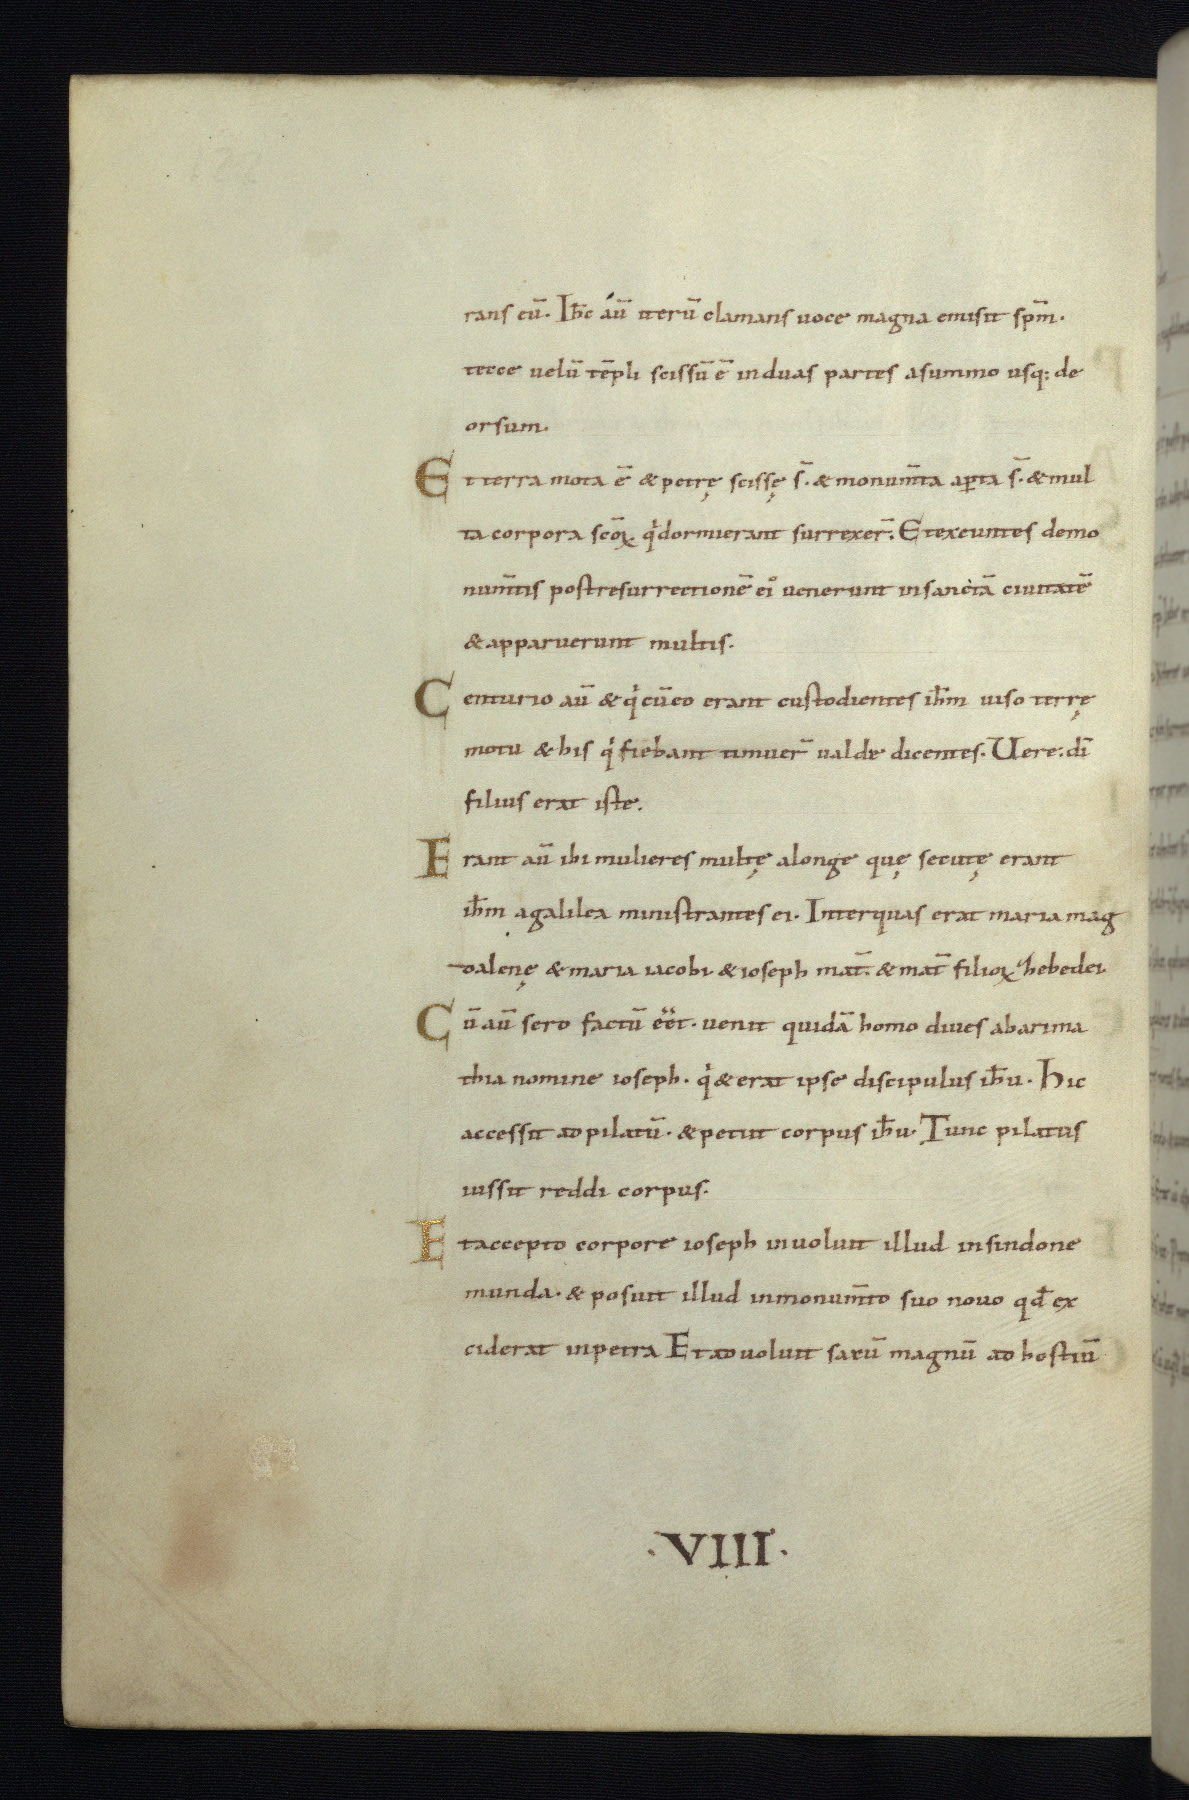 rans eū. Ih̄c aū iterū clamans uoce magna emisit sp̄m.
tecce uelū tēpli scissū ē induas partes asummo usq; de
orsum.
Et terra mota ē & petrę scissę s̄. & monum̄ta ap̱ta s̄. & mul
ta corpora sc̄oꝝ qͥ dormierant surrexer̄. Et exeuntes demo
num̄tis post resurrectionē eiꝰ uenerunt insanctā ciuitatē
& apparuerunt multis.
Centurio aū & qͥ cū eo erant custodientes ih̄m uiso terrę
motu & his qͥ fiebant timuer̄ ualde dicentes. Uere; dī
filius erat iste.
Erant aū ibi mulieres multę alonge quę secutę erant
ih̄m agalilea ministrantes ei. Interquas erat maria mag
dalenę & maria iacobi & ioseph mat̄. & mat̄ filioꝝ zebedei.
Cū aū sero factū eēt. uenit quidā homo diues abarima
thia nomine ioseph. qͥ & erat ipse discipulus ih̄u. Hic
accessit ad pilatū. & petiit corpus ih̄u. Tunc pilatus
iussit reddi corpus.
Et accepto corpore ioseph inuoluit illud insindone
munda. & posuit illud inmonum̄to suo nouo qd̄ ex
ciderat inpetra Et aduoluit saxū magnū ad hostiū
.VIII.